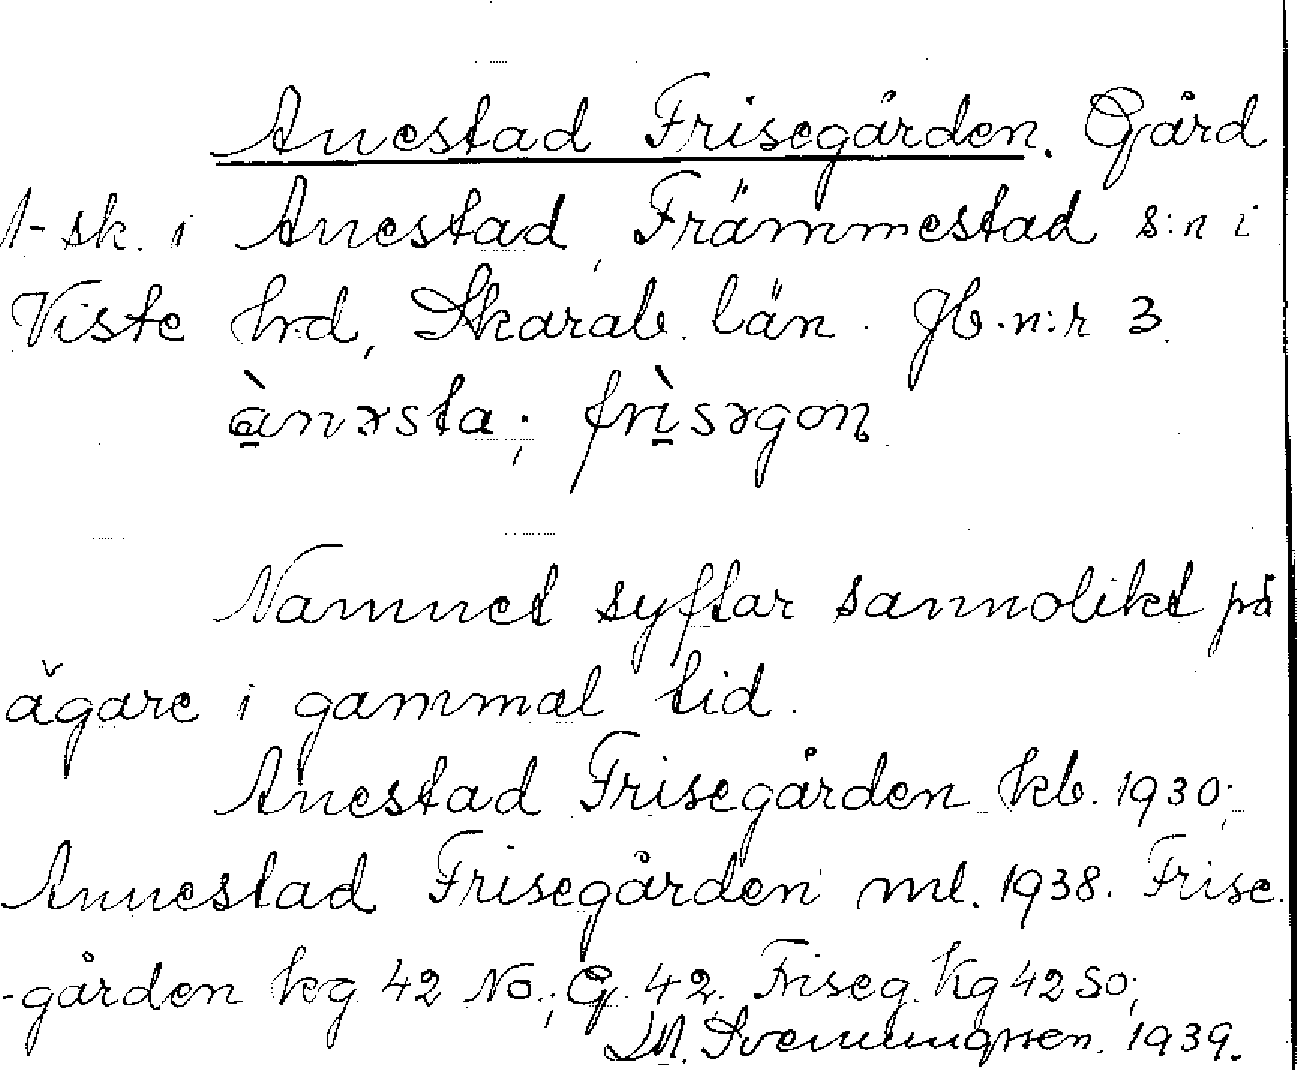 Anestad Frisegården. Gård
1-sk. i Anestad, Främmestad s:n i
Viste hrd, Skarab. län. Jb.n:r 3.
ànəsta; frìsəgoɳ
Namnet syftar sannolikt på
ägare i gammal tid.
Anestad Frisegården kb. 1930;
Annestad Frisegården ml. 1938. Frise-
-gården kg 42 No.; G. 42. Friseg. Kg 42 SO;
Svenungsson. 1939.